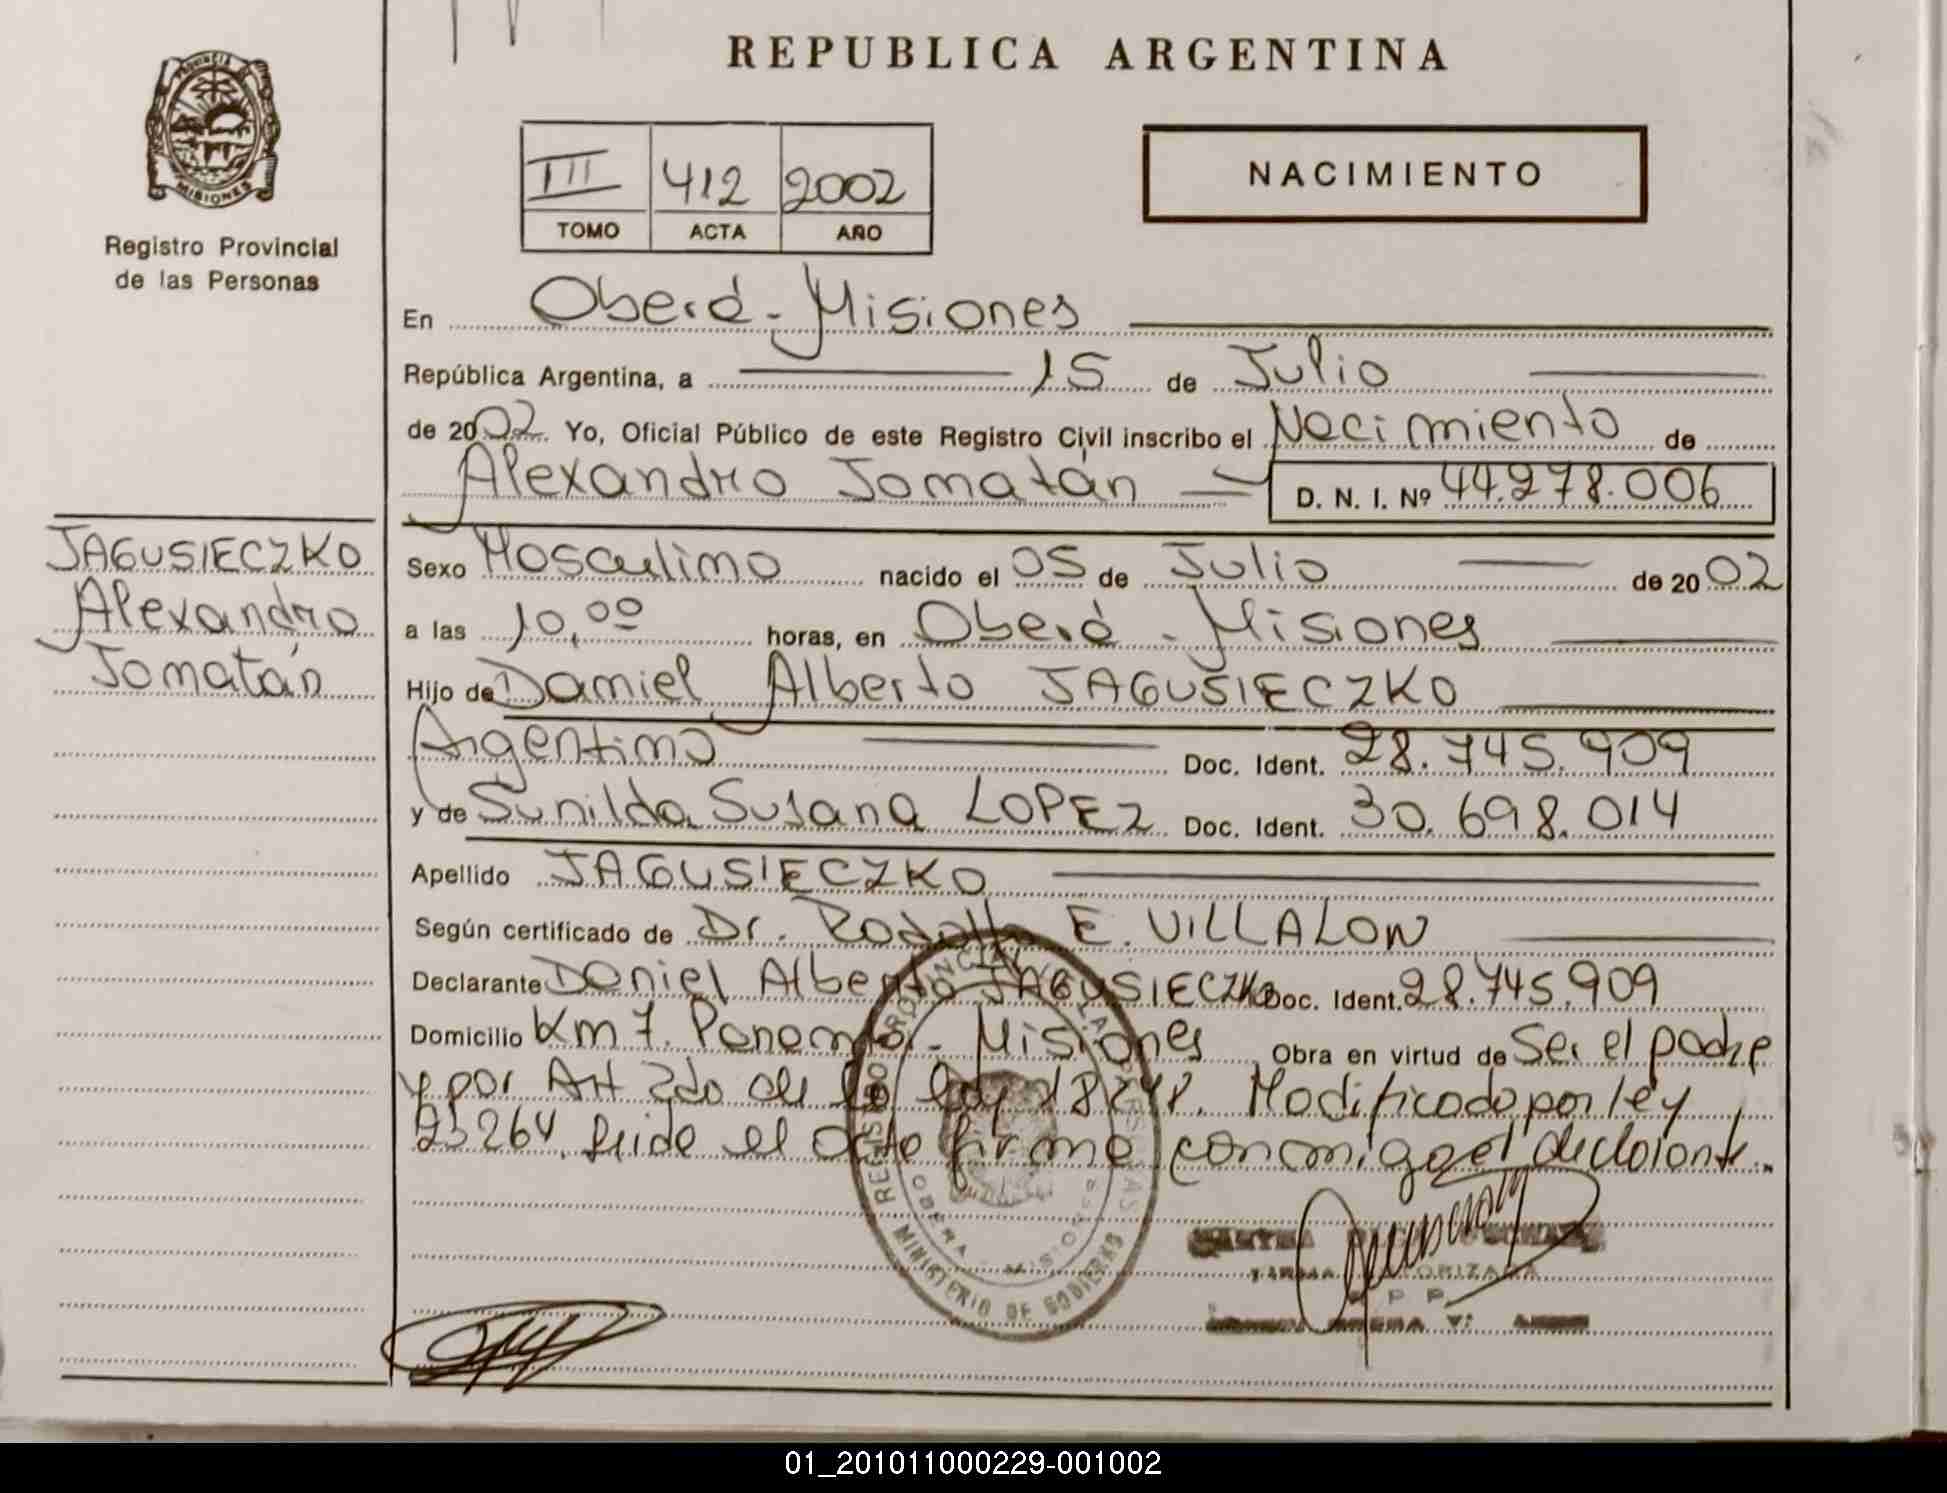 REPUBLICA ARGENTINA
PROVINCIA DE
MISIONES
Registro Provincial
de las Personas
III 412 2002
TOMO ACTA AÑO
NACIMIENTO
En Oberá - Misiones
República Argentina, a 15 de Julio
de 2002. Yo, Oficial Público de este Registro Civil inscribo el Nacimiento de
Alexandro Jonatán D. N. I. Nº 44.278.006
JAGUSIECZKO
Alexandro
Jonatán
Sexo Masculino nacido el 05 de Julio de 2002
a las 10,00 horas, en Oberá - Misiones
Hijo de Daniel Alberto JAGUSIECZKO
Argentino Doc. Ident. 28.745.909
y de Sunilda Susana LOPEZ Doc. Ident. 30.698.014
Apellido JAGUSIECZKO
Según certificado de Dr. Rodolfo E. VILLALON
Declarante Daniel Alberto JAGUSIECZKO Doc. Ident. 28.745.909
Domicilio Km 7. Panambí - Misiones Obra en virtud de Ser el padre
y por Art 2do de la ley 18248. Modificado por ley
23264. Leida el acta firma conmigo el declarante.
REGISTRO PROVINCIAL DE LAS PERSONAS
OBERA - MISIONES
MINISTERIO DE GOBIERNO
FIRMA AUTORIZADA
R P P
01_201011000229-001002